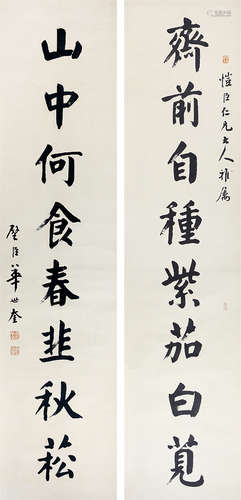 愷臣仁兄大人雅属
齋前自種紫茄白莧
山中何食春韭秋菘
璧臣華世奎